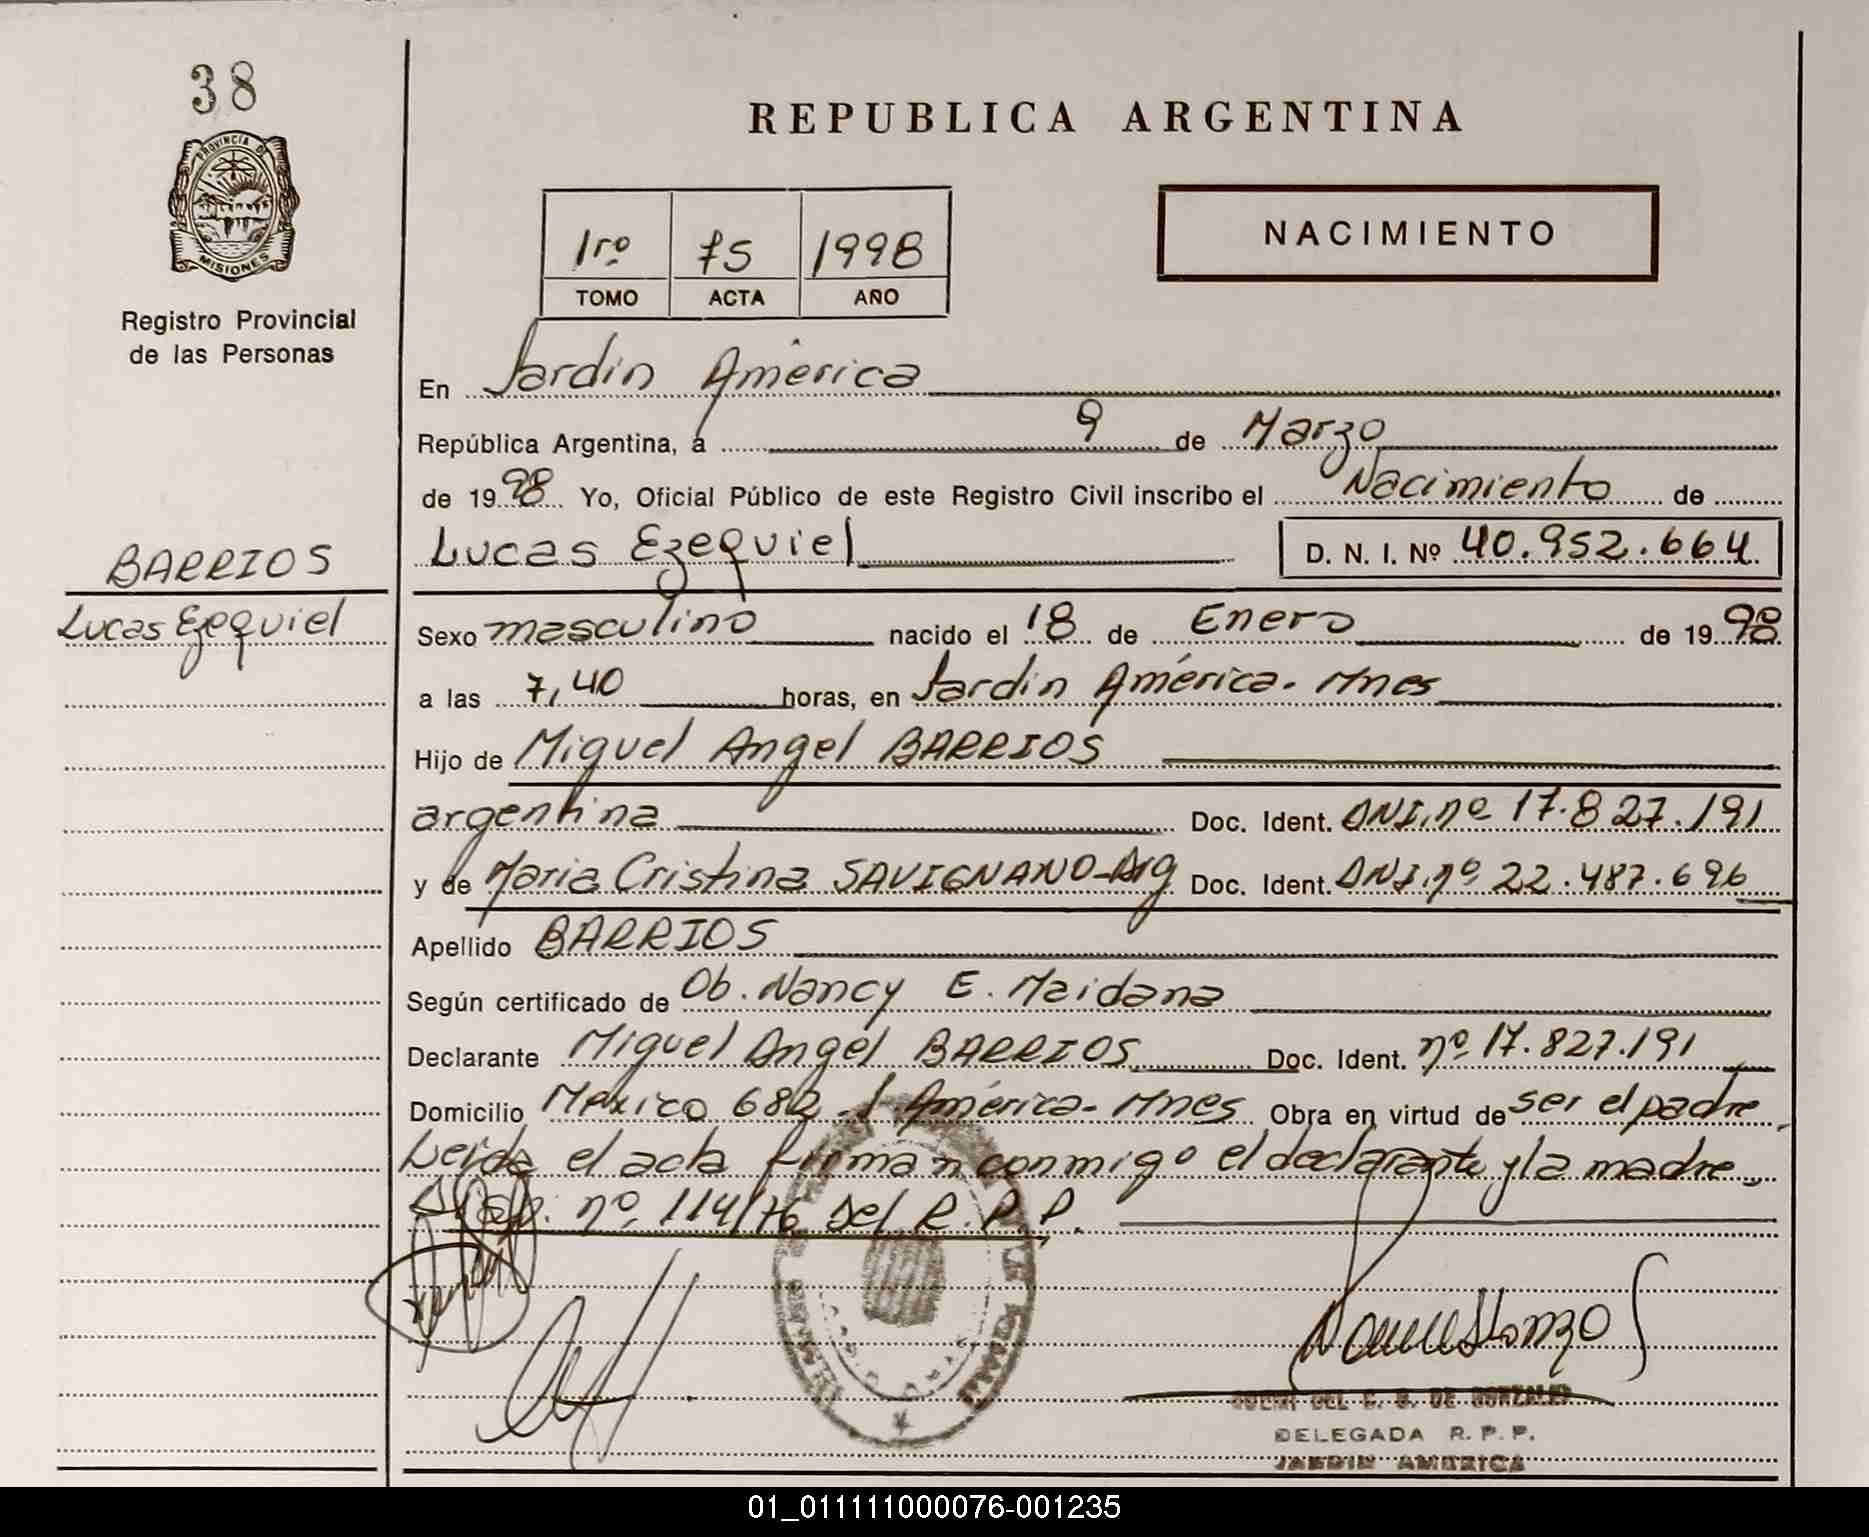 38
PROVINCIA DE
MISIONES
Registro Provincial
de las Personas
BARRIOS
Lucas Ezequiel
REPUBLICA ARGENTINA
1ro 75 1998
TOMO ACTA AÑO
NACIMIENTO
En Jardin América
República Argentina, a 9 de Marzo
de 1998 Yo, Oficial Público de este Registro Civil inscribo el Nacimiento de
Lucas Ezequiel D. N. I. Nº 40.952.664
Sexo masculino nacido el 18 de Enero de 1998
a las 7,40 horas, en Jardin América. Mnes
Hijo de Miguel Angel BARRIOS
argentina Doc. Ident. DNI.nº 17.827.191
y de Maria Cristina SAVIGNANO-Arg Doc. Ident. DNI.nº 22.487.696
Apellido BARRIOS
Según certificado de Ob. Nancy E. Maidana
Declarante Miguel Angel BARRIOS Doc. Ident. nº 17.827.191
Domicilio Mexico 682 - J. América - Mnes Obra en virtud de ser el padre.
Leida el acta firman conmigo el declarante y la madre
nº 114/76 del R.P.P.
DEL C. B. DE GONZALEZ
DELEGADA R. P. P.
JARDIN AMERICA
01_011111000076-001235